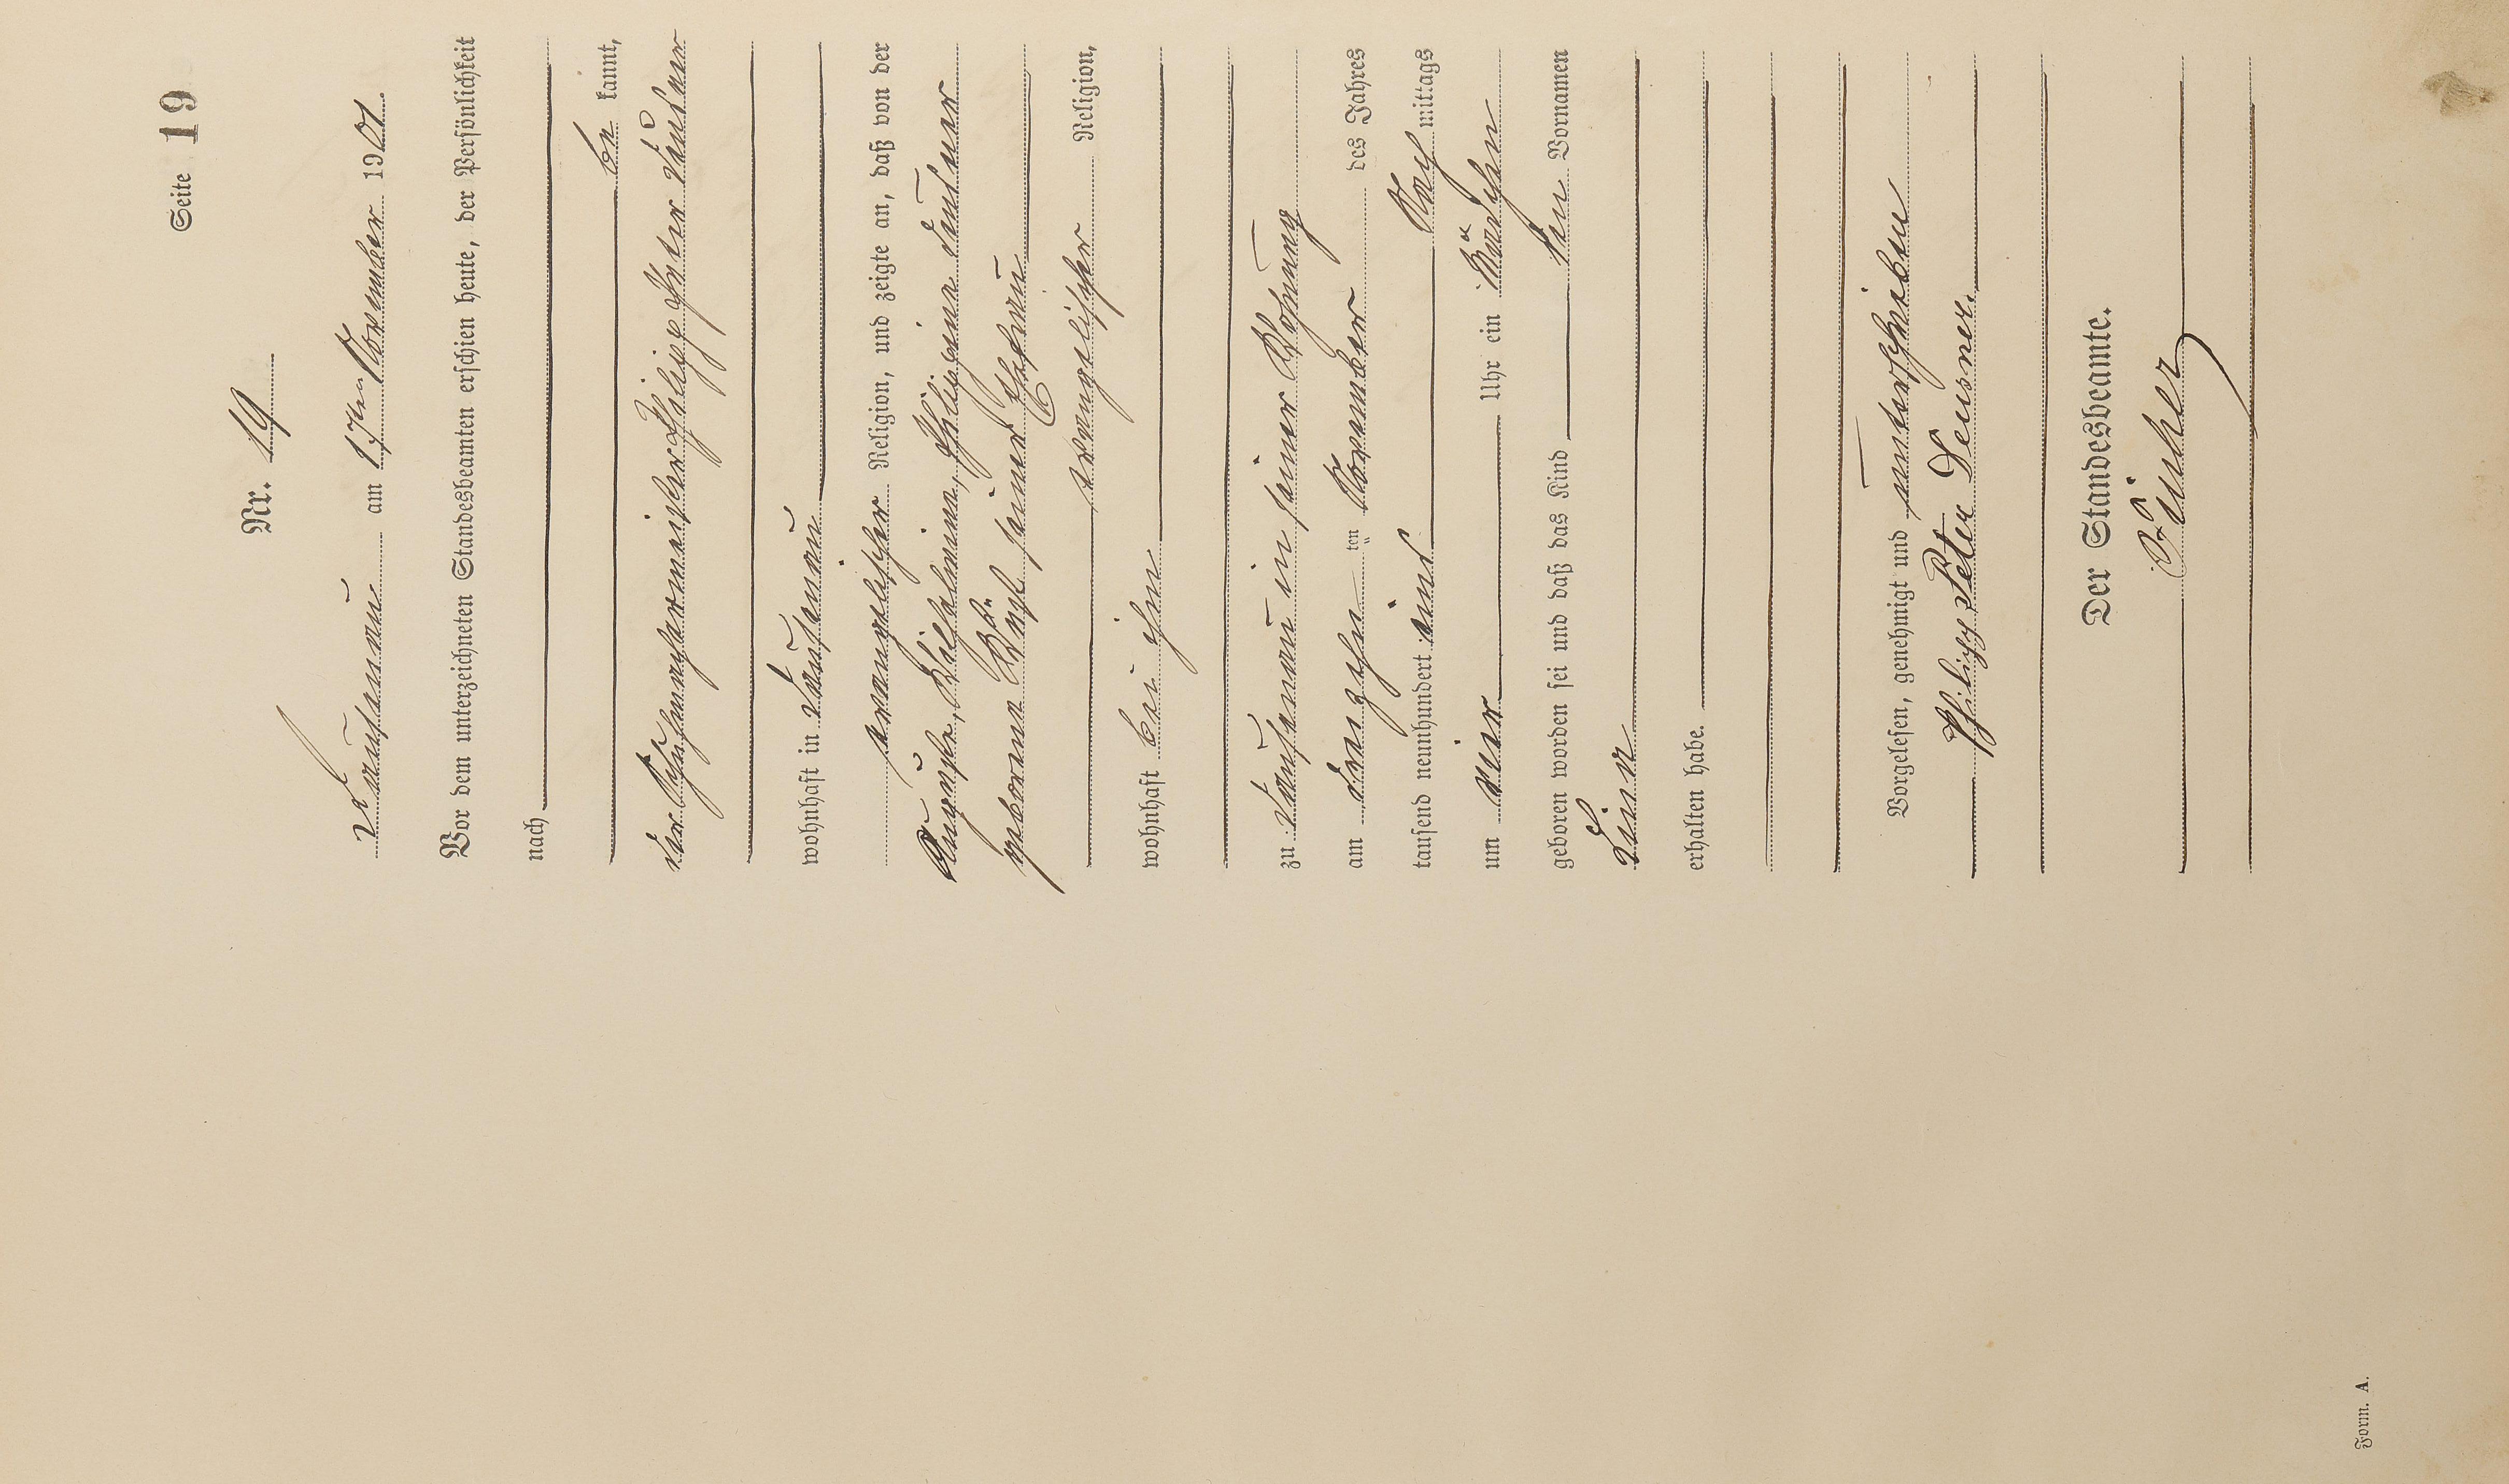 Seite 19
Nr. 19
Laudenau am 17ten November 1901.
Vor dem unterzeichneten Standesbeamten erschien heute, der Persönlichkeit
nach
be kannt,
der Schuhmachermeister Philipp Peter Deusner
wohnhaft in Laudenau
evangelischer Religion, und zeigte an, daß von der
Auguste, Wilhelmine, Philippine Deusner
geborne seiner Ehefrau
evangelischer Religion,
wohnhaft bei ihm
zu Laudenau in seiner Wohnung
am dreizehn ten November des Jahres
tausend neunhundert eins Nach mittags
um vier Uhr ein Mädchen
geboren worden sei und daß das Kind den Vornamen
Lina
erhalten habe.
Vorgelesen, genehmigt und unterschrieben
Philipp Peter Deusner.
Der Standesbeamte.
Form. A.